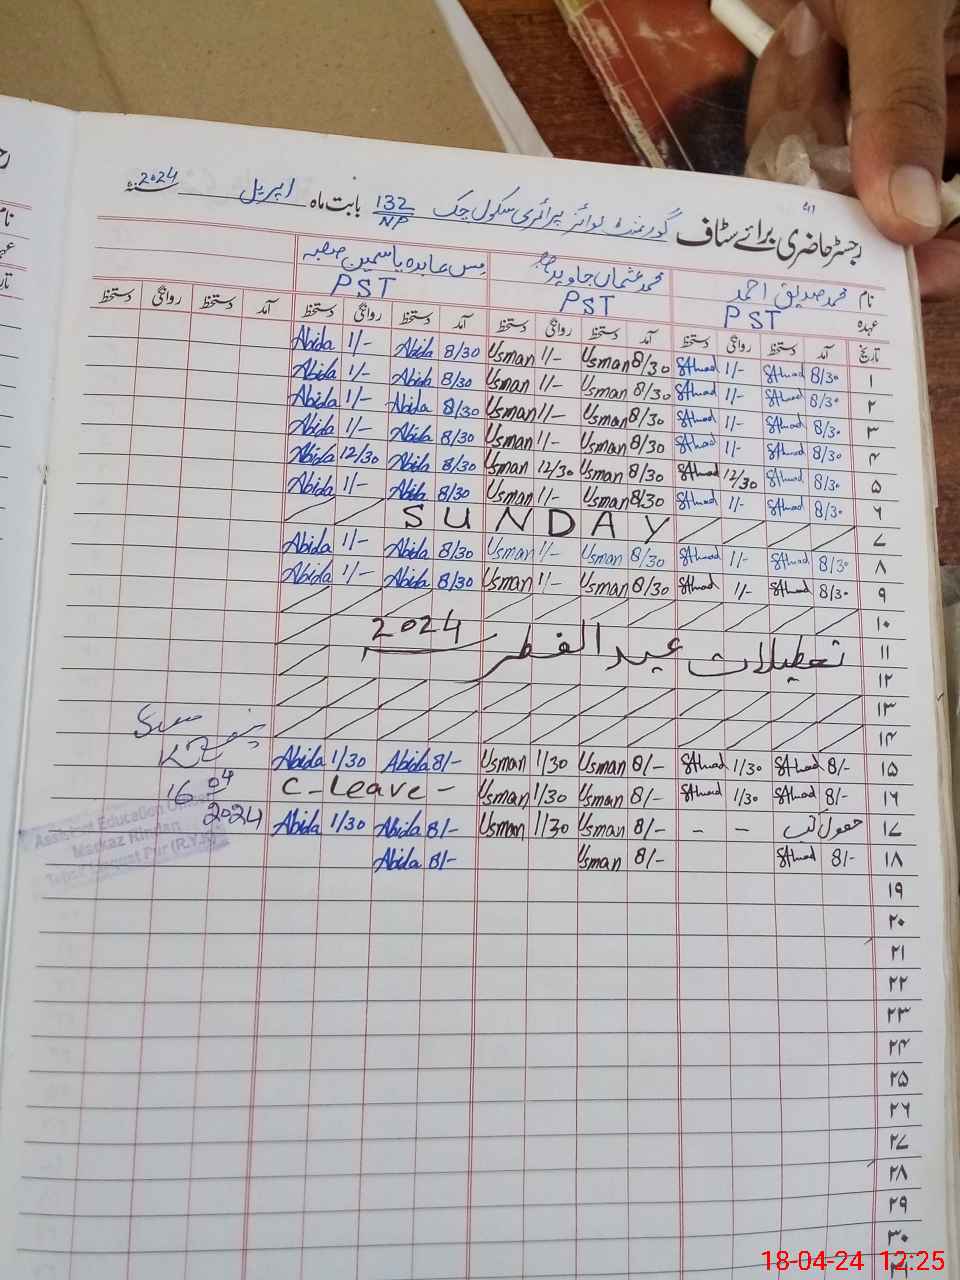 41
رجسٹر حاضری برائے سٹاف گورنمنٹ بوائز پرائمری سکول چک 132/NP بابت ماہ اپریل سنہ 2024
نام محمد صدیق احمد محمد عثمان جاوید صاحب مس عابدہ یاسمین صاحبہ
عہدہ PST PST PST
تاریخ آمد دستخط روانگی دستخط آمد دستخط روانگی دستخط آمد دستخط روانگی دستخط آمد دستخط روانگی دستخط
۱ 8/30 SAhmad 1/- SAhmad 8/30 Usman 1/- Usman 8/30 Abida 1/- Abida
۲ 8/30 SAhmad 1/- SAhmad 8/30 Usman 1/- Usman 8/30 Abida 1/- Abida
۳ 8/30 SAhmad 1/- SAhmad 8/30 Usman 1/- Usman 8/30 Abida 1/- Abida
۴ 8/30 SAhmad 1/- SAhmad 8/30 Usman 1/- Usman 8/30 Abida 1/- Abida
۵ 8/30 SAhmad 12/30 SAhmad 8/30 Usman 12/30 Usman 8/30 Abida 12/30 Abida
۶ 8/30 SAhmad 1/- SAhmad 8/30 Usman 1/- Usman 8/30 Abida 1/- Abida
۷ SUNDAY
۸ 8/30 SAhmad 1/- SAhmad 8/30 Usman 1/- Usman 8/30 Abida 1/- Abida
۹ 8/30 SAhmad 1/- SAhmad 8/30 Usman 1/- Usman 8/30 Abida 1/- Abida
۱۰
۱۱ تعطیلات عید الفطر 2024
۱۲
۱۳
۱۴
۱۵ 8/- SAhmad 1/30 SAhmad 8/- Usman 1/30 Usman 8/- Abida 1/30 Abida
۱۶ 8/- SAhmad 1/30 SAhmad 8/- Usman 1/30 Usman C-Leave -
۱۷ حصول کتب - - 8/- Usman 1/30 Usman 8/- Abida 1/30 Abida
۱۸ 8/- SAhmad 8/- Usman 8/- Abida
۱۹
۲۰
۲۱
۲۲
۲۳
۲۴
۲۵
۲۶
۲۷
۲۸
۲۹
۳۰
16 04
2024
Assistant Education Officer
Markaz Kindan
Pur (R.Y.K)
18-04-24 12:25